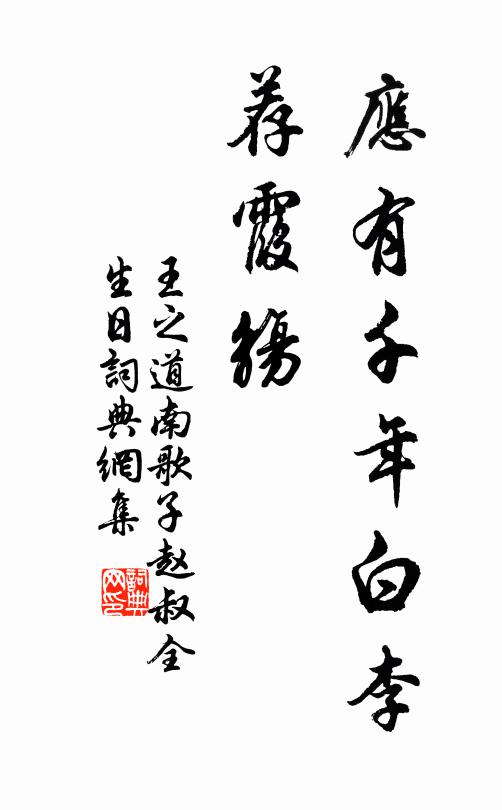 應有千年白李
荐霞觴
王之道南歌子赵叔全
生日詞典網集
詞典
网印